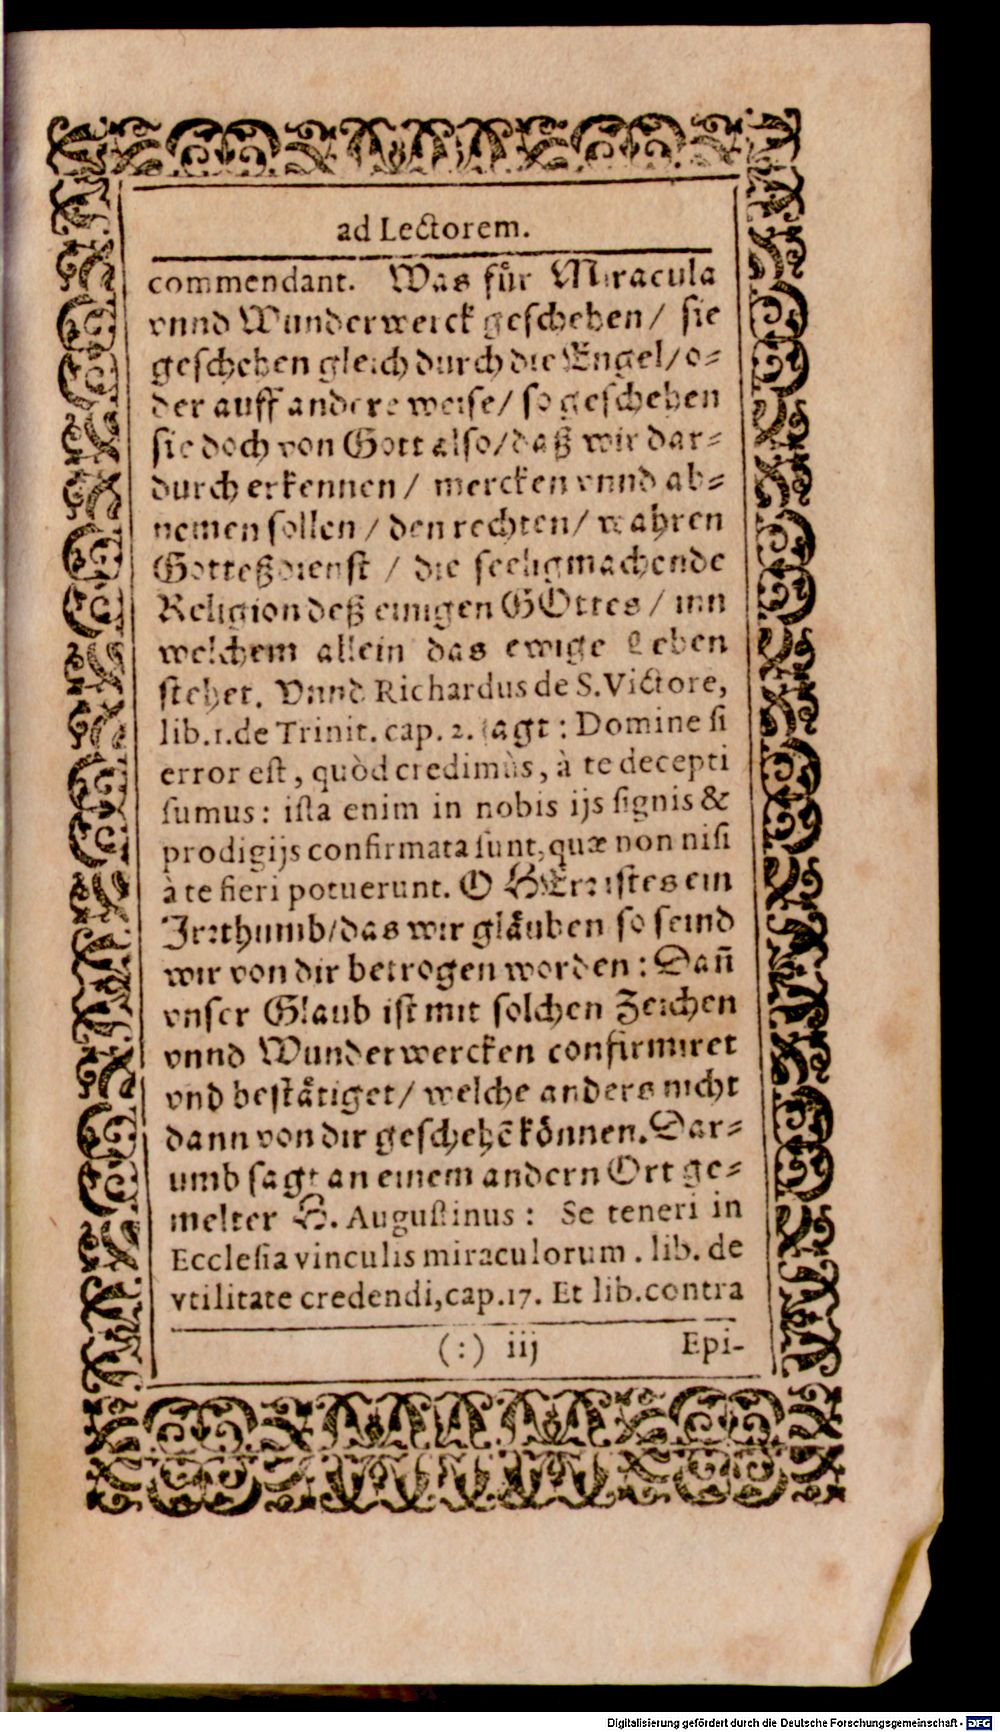 ad Lectorem.
commendant. Was fůr Miracula
vnnd Wunderwerck geschehen/ sie
geschehen gleich durch die Engel/ o-
der auff andere weise/ so geschehen
sie doch von Gott also/ daß wir dar-
durch erkennen/ mercken vnnd ab-
nemen sollen / den rechten/ wahren
Gotteßdienst / die seeligmachende
Religion deß einigen GOttes/ inn
welchem allein das ewige Leben
stehet. Vnnd Richardus de S. Victore,
lib.1.de Trinit. cap. 2. sagt : Domine si
error est, quòd credimùs, à te decepti
sumus: ista enim in nobis ijs signis &
prodigijs confirmata sunt, quæ non nisi
à te fieri potuerunt. O HErr istes ein
Irrthumb/das wir glåuben so seind
wir von dir betrogen worden : Dañ
vnser Glaub ist mit solchen Zeichen
vnnd Wunderwercken confirmiret
vnd beståtiget/ welche anders nicht
dann von dir geschehẽ kônnen. Dar-
umb sagt an einem andern Ort ge-
melter H. Augustinus : Se teneri in
Ecclesia vinculis miraculorum . lib. de
vtilitate credendi, cap.17. Et lib.contra
(:) iij Epi-
Digitalisierung gefördert durch die Deutsche Forschungsgemeinschaft - DFG